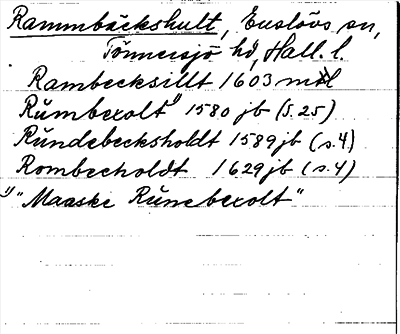 Rammbäckshult, Enslövs sn,
Tönnersjö hd, Hall. l.
Rambecksillt 1603 mtl
Rŭmbexolt¹⁾ 1580 jb (s. 25)
Rŭndebecksholdt 1589 jb (s. 4)
Rombecholdt 1629 jb (s. 4)
¹⁾ "Maaske Rŭnebexolt"